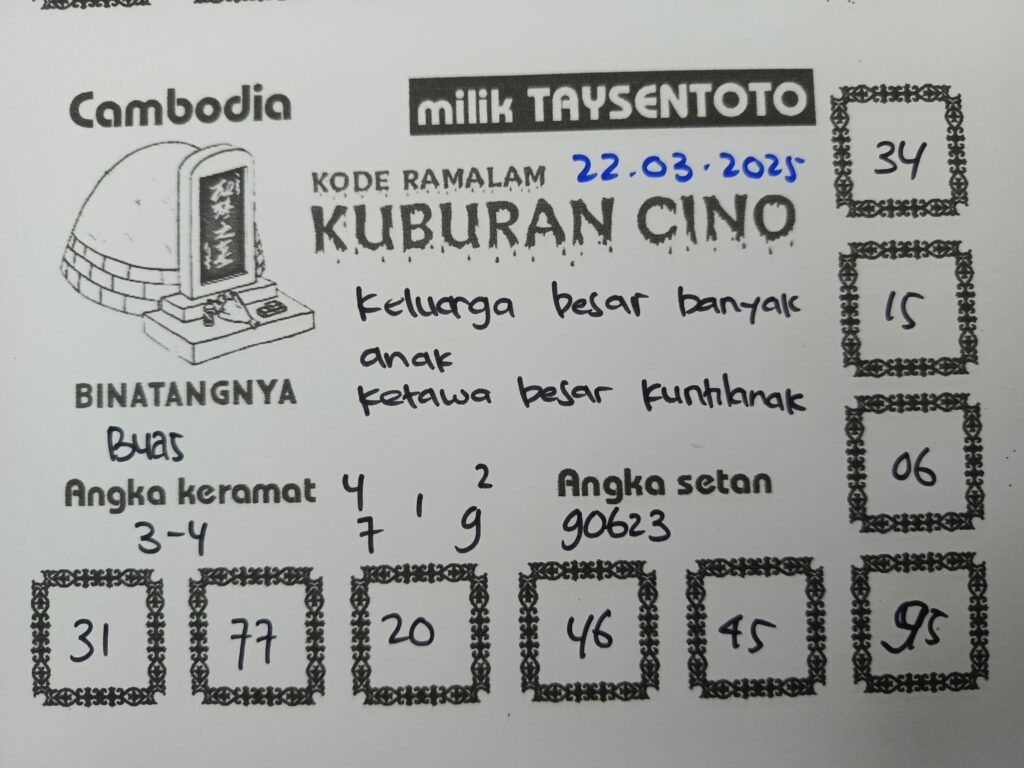 Cambodia
milik TAYSENTOTO
KODE RAMALAM 22.03.2025
KUBURAN CINO
keluarga besar banyak
anak
ketawa besar kuntilanak
BINATANGNYA
Buas
Angka keramat
3-4
4 2
1
7 9
Angka setan
90623
34
15
06
31 77 20 46 45 95